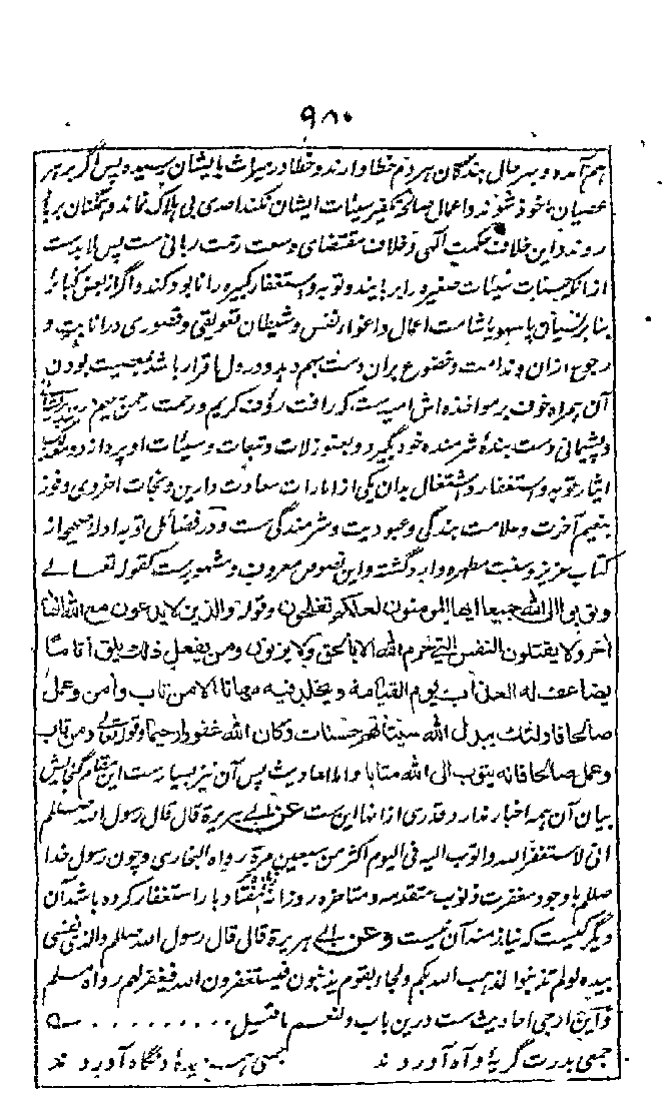 ۹۸۰
هم آمده و بهر حال بندگان هر دم خطا دارند و خطا در میراث بایشان رسیده پس اگر بر هر
عصیان ماخوذ شوند و اعمال صالحه تکفیر سیئات ایشان نکند احدی بی هلاک نماند و همگنان برباد
روند و این خلاف حکمت الهی و خلاف مقتضای وسعت رحمت ربانی ست پس لابد ست
از آنکه حسنات سیئات صغیره را بربایند و توبه و استغفار کبیره را نابود کند و اگر از بعض کبائر
بنا بر نسیان یا سهو یا شامت اعمال و اغواء نفس و شیطان تعویقی و قصوری در انابت و
رجوع ازان و ندامت و خضوع بران دست بهم دهد و در دل اقرار باشد بمعصیت بودن
آن همراه خوف بر مواخذه اش امیدست که رافت رؤف کریم و رحمت رحمن رحیم
و پشیمانی دست بندۀ شرمنده خود گیرد و بعفو زلات و تبعات و سیئات او پردازد و
ایثار توبه و استغفار و اشتغال بدان یکی از امارات سعادت دارین و نجات اخروی و فوز
بنعیم آخرت و علامت بندگی و عبودیت و شرمندگی ست و در فضائل توبه ادلۀ صحیحه از
کتاب عزیز و سنت مطهره وارد گشته و این نصوص معروف و مشهورست کقوله تعالے
وتوبوا الی الله جمیعا ایها المومنون لعلکم تفلحون وقوله والذین لا یدعون مع الله الٰها
آخر ولا یقتلون النفس التی حرم الله الا بالحق ولا یزنون ومن یفعل ذلک یلق اثاما
یضاعف له العذاب یوم القیامة ویخلد فیه مهانا الا من تاب وآمن وعمل
صالحا فاولئک یبدل الله سیئاتهم حسنات وکان الله غفورا رحیما وقوله تعالی ومن تاب
وعمل صالحا فانه یتوب الی الله متابا واما احادیث پس آن نیز بسیارست این مقام گنجایش
بیان آن همه اخبار ندارد و قدری ازانها این ست عن ابی هریرة قال قال رسول الله صلعم
انی لاستغفر الله واتوب الیه فی الیوم اکثر من سبعین مرة رواه البخاری و چون رسول خدا
صلعم با وجود مغفرت ذنوب متقدمه و متاخره روزانه هفتاد بار استغفار کرده باشد آن
دیگر کیست که نیازمند آن نیست وعن ابی هریرة قال قال رسول الله صلعم والذی نفسی
بیده لو لم تذنبوا لذهب الله بکم ولجاء بقوم یذنبون فیستغفرون الله فیغفر لهم رواه مسلم
و این ارجی احادیث ست درین باب ولنعم ما قیل
جمعی بدرت گریۀ و آه آوردند جمعی همه دیدۀ و نگاه آوردند